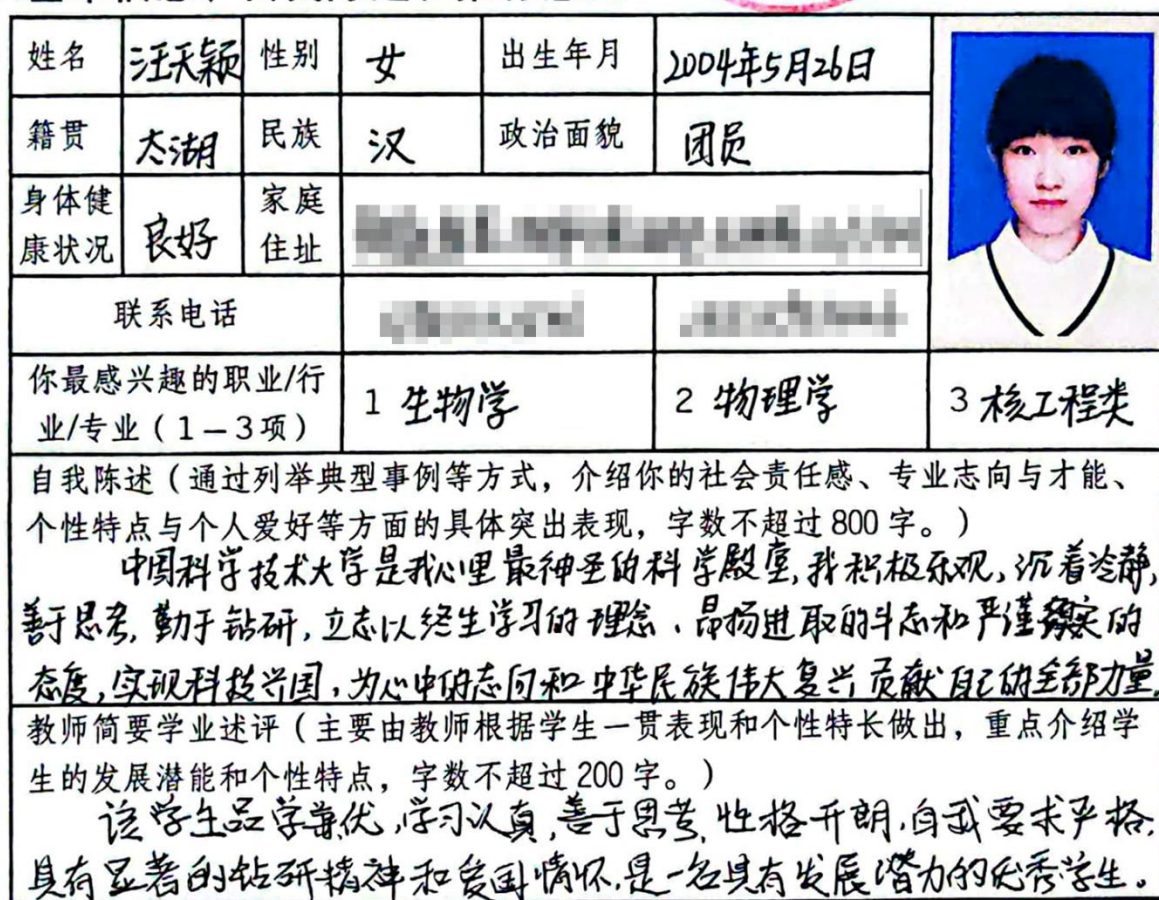 姓名 汪天颖 性别 女 出生年月 2004年5月26日
籍贯 太湖 民族 汉 政治面貌 团员
身体健 家庭
康状况 良好 住址
联系电话
你最感兴趣的职业/行
业/专业(1—3项) 1 生物学 2 物理学 3 核工程类
自我陈述(通过列举典型事例等方式,介绍你的社会责任感、专业志向与才能、
个性特点与个人爱好等方面的具体突出表现,字数不超过800字。)
中国科学技术大学是我心里最神圣的科学殿堂,我积极乐观,沉着冷静,
善于思考,勤于钻研,立志以终生学习的理念、昂扬进取的斗志和严谨务实的
态度,实现科技兴国,为心中的志向和中华民族伟大复兴贡献自己的全部力量。
教师简要学业述评(主要由教师根据学生一贯表现和个性特长做出,重点介绍学
生的发展潜能和个性特点,字数不超过200字。)
该学生品学兼优,学习认真,善于思考,性格开朗,自我要求严格,
具有显著的钻研精神和爱国情怀,是一名具有发展潜力的优秀学生。